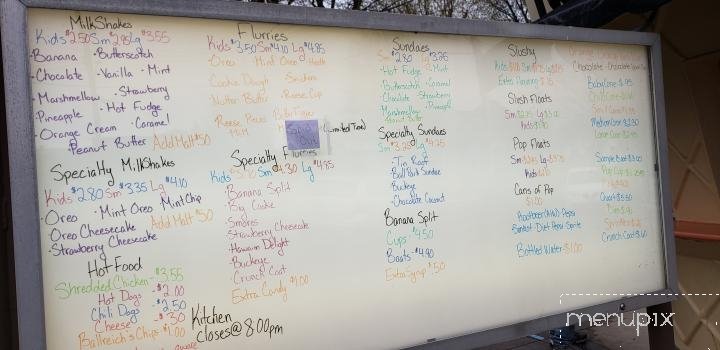 MilkShakes
Kids $2.50 Sm $2.85 Lg $3.55
Banana · Butterscotch
· Chocolate · Vanilla · Mint
· Marshmallow · Strawberry
· Pineapple · Hot Fudge
· Orange Cream · Caramel
· Peanut Butter Add Malt $.50
Specialty MilkShakes
Kids $2.80 Sm $3.35 Lg $4.10
· Oreo · Mint Oreo · Mint Chip
· Oreo Cheesecake Add Malt $.50
· Strawberry Cheesecake
Hot Food
Shredded Chicken - $3.55
Hot Dogs - $2.00
Chili Dogs - $2.50
Cheese - $.30
Ballreich's Chips $1.00
Kitchen
closes @ 8:00pm
Flurries
Kids $3.50 Sm $4.10 Lg $4.85
Oreo Mint Oreo Heath
Cookie Dough Snickers
Nutter Butter Reese Cup
Reese Pieces
M&M
(Limited Time)
Specialty Flurries
Kids Sm $4.30 Lg $4.95
· Banana Split
· Big Cookie
· Smores
· Strawberry Cheesecake
· Hawaiin Delight
· Buckeye
· Crunch Coat
Extra Candy $1.00
Sundaes
Sm $2.80 Lg $3.25
· Hot Fudge · Mint
· Butterscotch · Caramel
· Chocolate · Strawberry
· Marshmallow · Pineapple
Peanut Butter
Specialty Sundaes
Sm Lg $4.25
· Tin Roof
· Ball Park Sundae
· Buckeye
· Chocolate Coconut
Banana Split
Cups $4.50
Boats $4.90
Extra Syrup $.50
Slushy
Kids Sm Lg
Extra Flavoring $.15
Slush Floats
Sm Lg
Kids
Pop Floats
Sm Lg
Kids
Cans of Pop
$1.00
Rootbeer (A&W) Pepsi
Sunkist · Diet Pepsi · Sprite
Bottled Water $1.00
Chocolate ·
Baby Cone $.95
Medium Cone
Large Cone
Sample Boat
Quart
Crunch Coat $.60
menupix